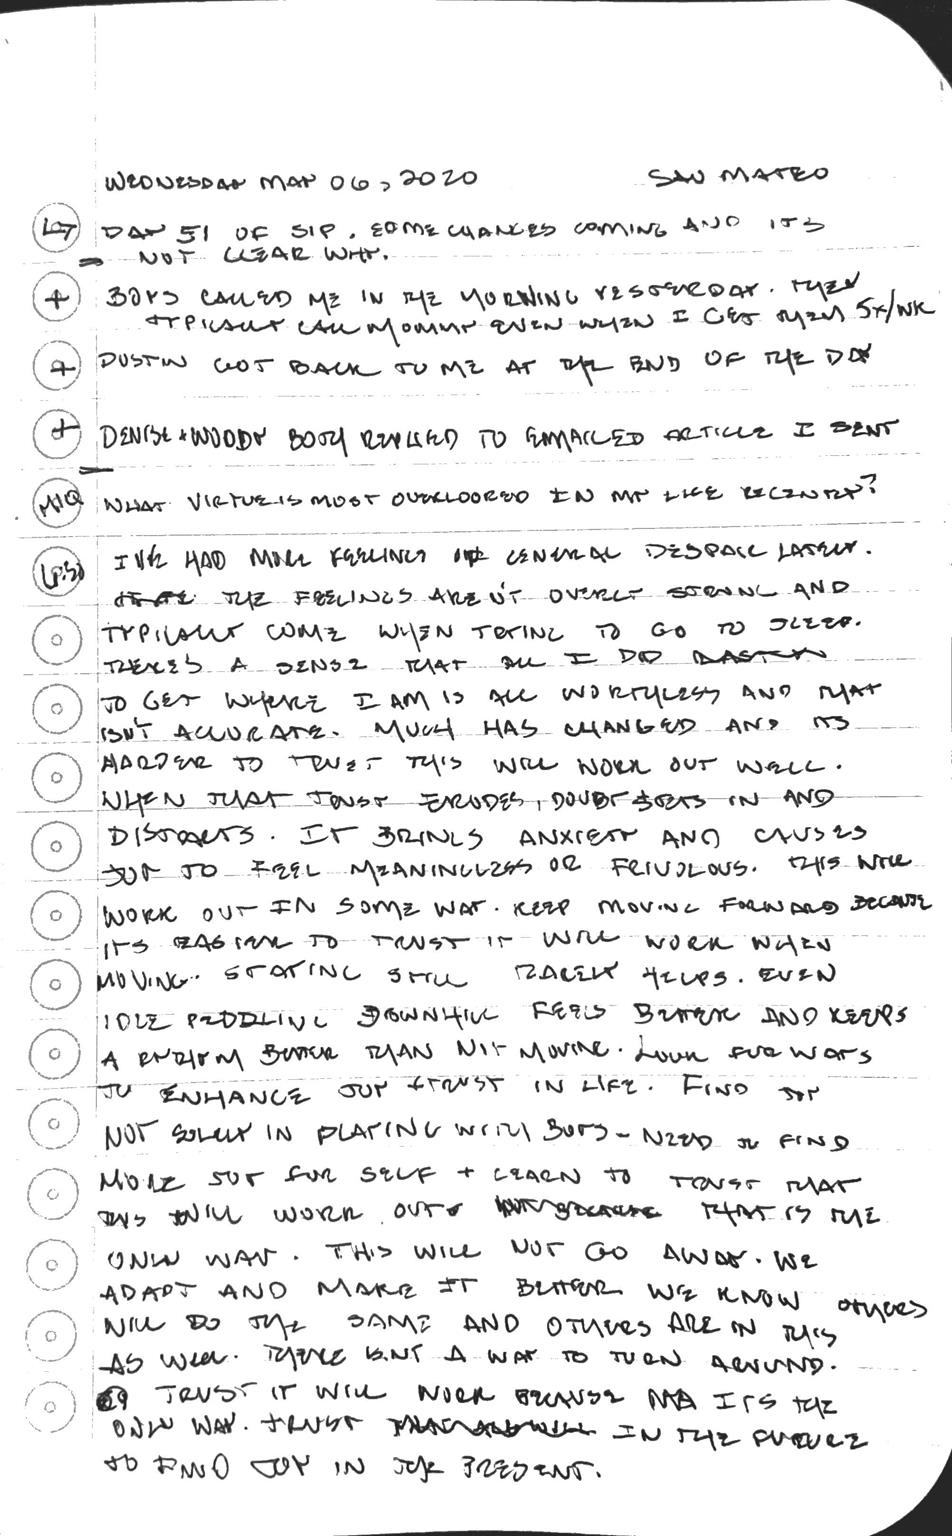 WEDNESDAY MAY 06, 2020 SAN MATEO
DAY 51 OF SIP. SOME CHANGES COMING AND ITS
NOT CLEAR WHY.
+ BOYS CALLED ME IN THE MORNING YESTERDAY. THEY
TYPICALLY CALL MOMMY EVEN WHEN I GET THEM 5X/WK
+ DUSTIN GOT BACK TO ME AT THE END OF THE DAY
+ DENISE + WOODY BOTH REPLIED TO EMAILED ARTICLE I SENT
WHAT VIRTUE IS MOST OVERLOOKED IN MY LIFE RECENTLY?
I'VE HAD MORE FEELINGS OF GENERAL DESPAIR LATELY.
THE FEELINGS AREN'T OVERLY STRONG AND
TYPICALLY COME WHEN TRYING TO GO TO SLEEP.
THERE'S A SENSE THAT ALL I DID
TO GET WHERE I AM IS ALL WORTHLESS AND THAT
ISN'T ACCURATE. MUCH HAS CHANGED AND ITS
HARDER TO TRUST THIS WILL WORK OUT WELL.
WHEN THAT TRUST ERODES, DOUBT SETS IN AND
DISTRACTS. IT BRINGS ANXIETY AND CAUSES
JOY TO FEEL MEANINGLESS OR FRIVOLOUS. THIS WILL
WORK OUT IN SOME WAY. KEEP MOVING FORWARD BECAUSE
ITS EASIER TO TRUST IT WILL WORK WHEN
MOVING. STAYING STILL RARELY HELPS. EVEN
IDLE PEDDLING DOWNHILL FEELS BETTER AND KEEPS
A RHYTHM BETTER THAN NOT MOVING. LOOK FOR WAYS
TO ENHANCE JOY + TRUST IN LIFE. FIND JOY
NOT SOLELY IN PLAYING WITH BOYS - NEED TO FIND
MORE JOY FOR SELF + LEARN TO TRUST THAT
THIS WILL WORK OUT. THAT IS THE
ONLY WAY. THIS WILL NOT GO AWAY. WE
ADAPT AND MAKE IT BETTER. WE KNOW OTHERS
WILL DO THE SAME AND OTHERS ARE IN THIS
AS WELL. THERE ISN'T A WAY TO TURN AROUND.
TRUST IT WILL WORK BECAUSE ITS THE
ONLY WAY. TRUST IN THE FUTURE
TO FIND JOY IN THE PRESENT.